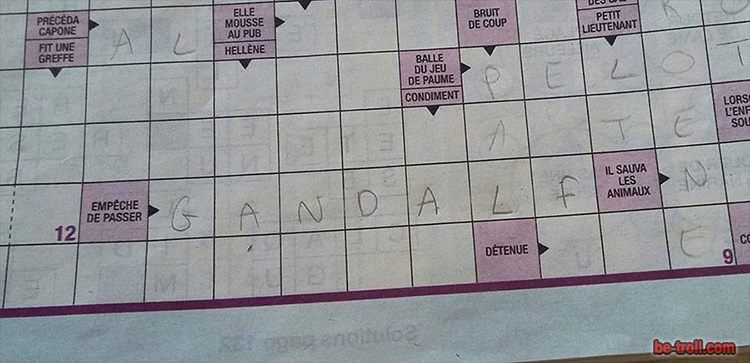 PRÉCÉDA
CAPONE
FIT UNE
GREFFE
A L
ELLE
MOUSSE
AU PUB
HELLÈNE
BRUIT
DE COUP
PETIT
LIEUTENANT
O
BALLE
DU JEU
DE PAUME
CONDIMENT
P E L O T
A T E
EMPÊCHE
DE PASSER
12
G A N D A L F
IL SAUVA
LES
ANIMAUX
N
DÉTENUE
E
9
be-troll.com